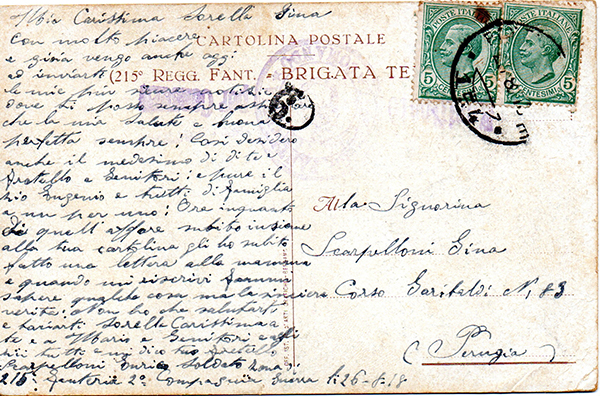 Mia Carissima Sorella Gina
Con molto piacere
e gioia vengo anche oggi
ad inviarti
le mie più sicure notizie
dove ti posso sempre assicurare
che la mia salute buona
perfetta sempre; Così desidero
anche il medesimo di di te e
fratello e Genitori: e pure il
zio Eugenio e tutti di famiglia
a uno per uno; Ore inquanto
di quell'affare subito insieme
alla tua cartolina gli ho subito
fatto una lettera alla mamma
e quando mi riscrivi fammi
sapere qualche cosa ma la sincera
verità: Non ho che salutarti
e baciarti Sorella Carissima
te e a Mario e Genitori
tutti e mi dico tuo fratello
Scarpelloni Enrico Soldato
215° Fanteria 2° Compagnia Guerra li 26-8-18
CARTOLINA POSTALE
(215° REGG. FANT. - BRIGATA TE
POSTE ITALIANE
5 CENTESIMI 5
POSTE ITALIANE
5 CENTESIMI 5
Alla Signorina
Scarpelloni Gina
Corso Garibaldi N. 83
(Perugia)